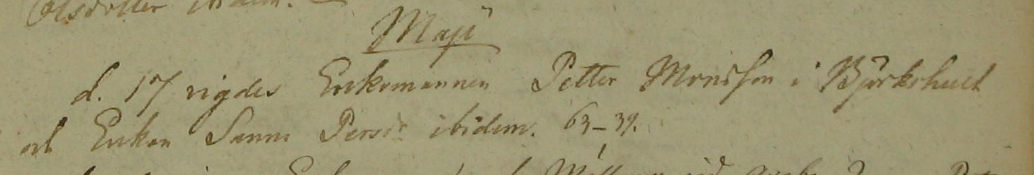 Olsdotter ibidem.
Maji
d. 17 vigdes Enkemannen Petter Monsson i Björkhult
och Enkan Sanna Persdr ibidem. 63–39.